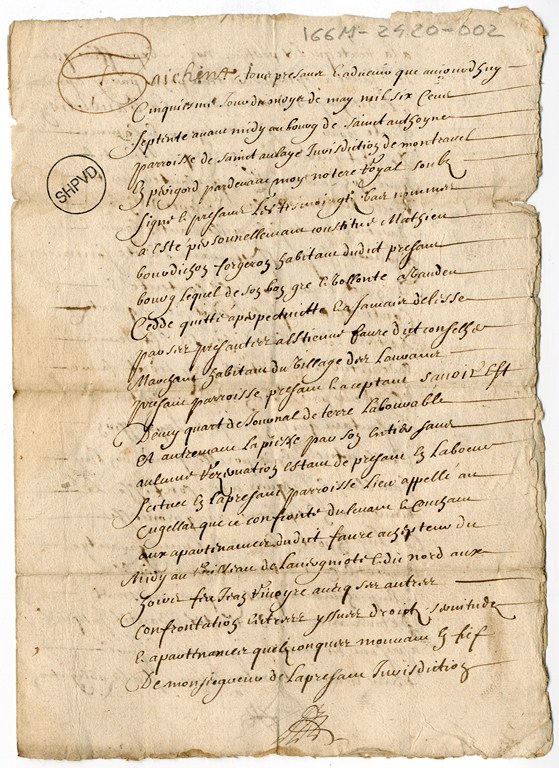 166M-2920-002
SHPVD
Saichent tous presans et advenir que aujourdhuy
Cinquiesme Jour du moys de may mil six Cens
Septente avant midy au bourg de Sainct anthoyne
parroisse de Sainct aulaye Jurisdiction de montravel
En perigord pardevant moy notere Royal soubz
signe et presans les tesmoingz bas nommes
a este personnellemant constitue Mathieu
bourdichon forgeron habitant dudict presant
bourg lequel de son bon gre et vollonte a vandeu
Cedde quitté a perpectuictte et a Jamais delisse
par ses presantes a Estienne faure dict
Marchant habitant du village des
presant parroisse presant et aceptant savoir Est
Demy quart de Journal de terre Labourable
et autremant la piesse par son entier sans
aulcune Rezervation estant de presant en Labour
scetuee en la presant parroisse Lieu appellé au
que ce confronte du levant et Couchant
aux apartenances dudict faure achepteur du
Midy au de et du nord aux
hoirs feu Jean avecq ses autres
confrontations entrees yssues droictz servitudes
et apartenances quelzconques mouvant en fief
De monseigneur de la presant Jurisdiction